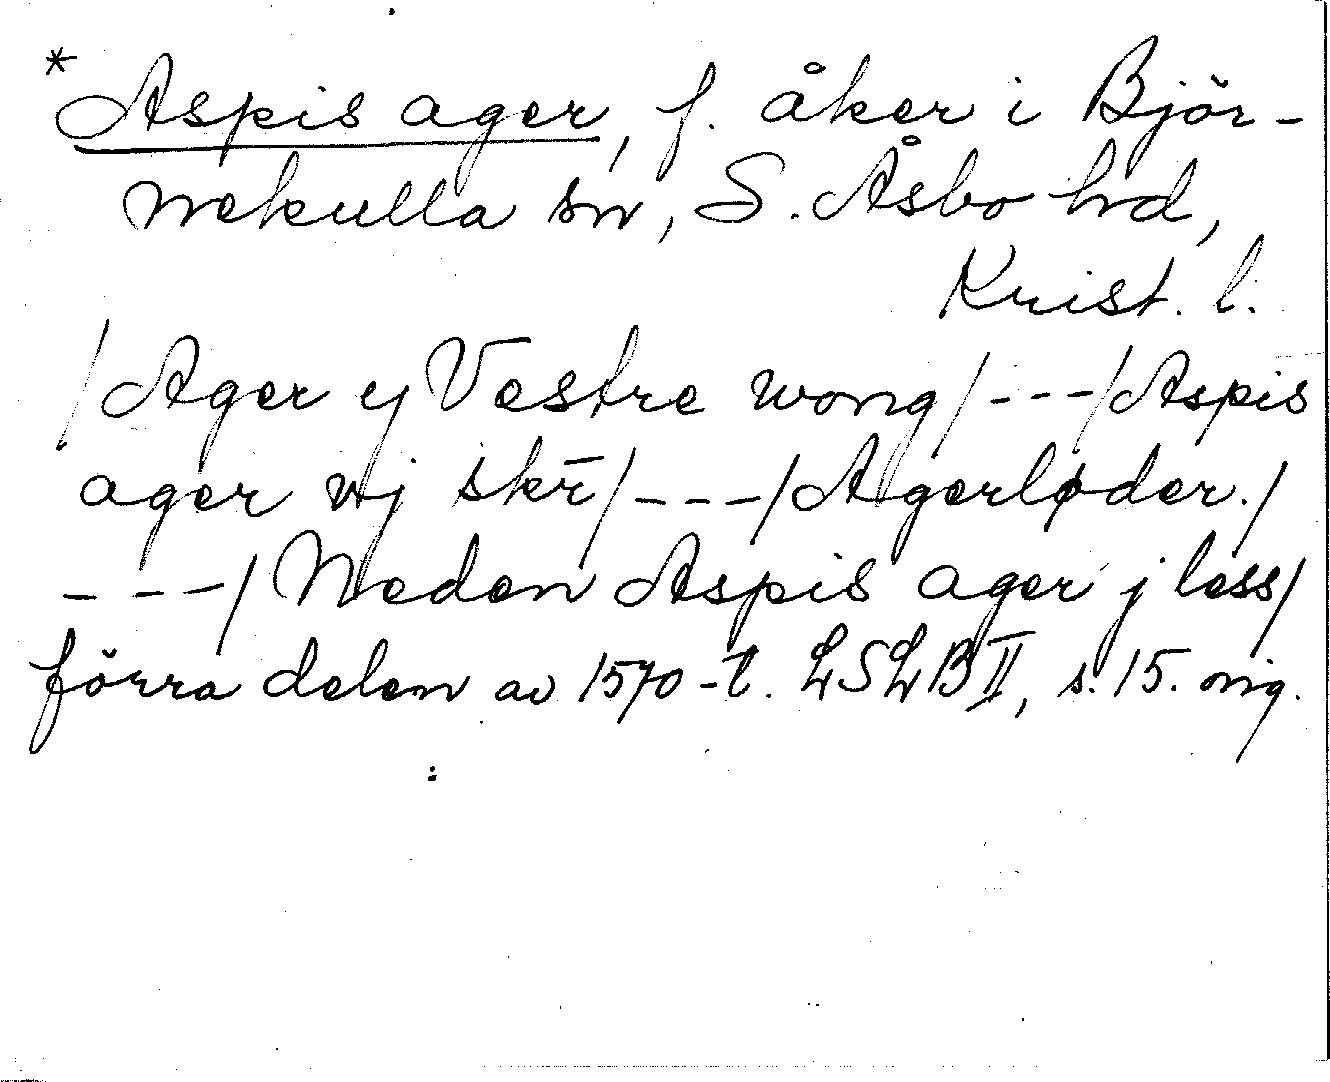 * Aspis ager, f. åker i Björ-
nekulla sn, S. Åsbo hd,
Krist. l.
/Ager ij Vestre wong/---/Aspis
ager vij skr̄/---/Agerløder./
---/Neden Aspis ager j less/
förra delen av 1570-t. LSLB II, s. 15. orig.